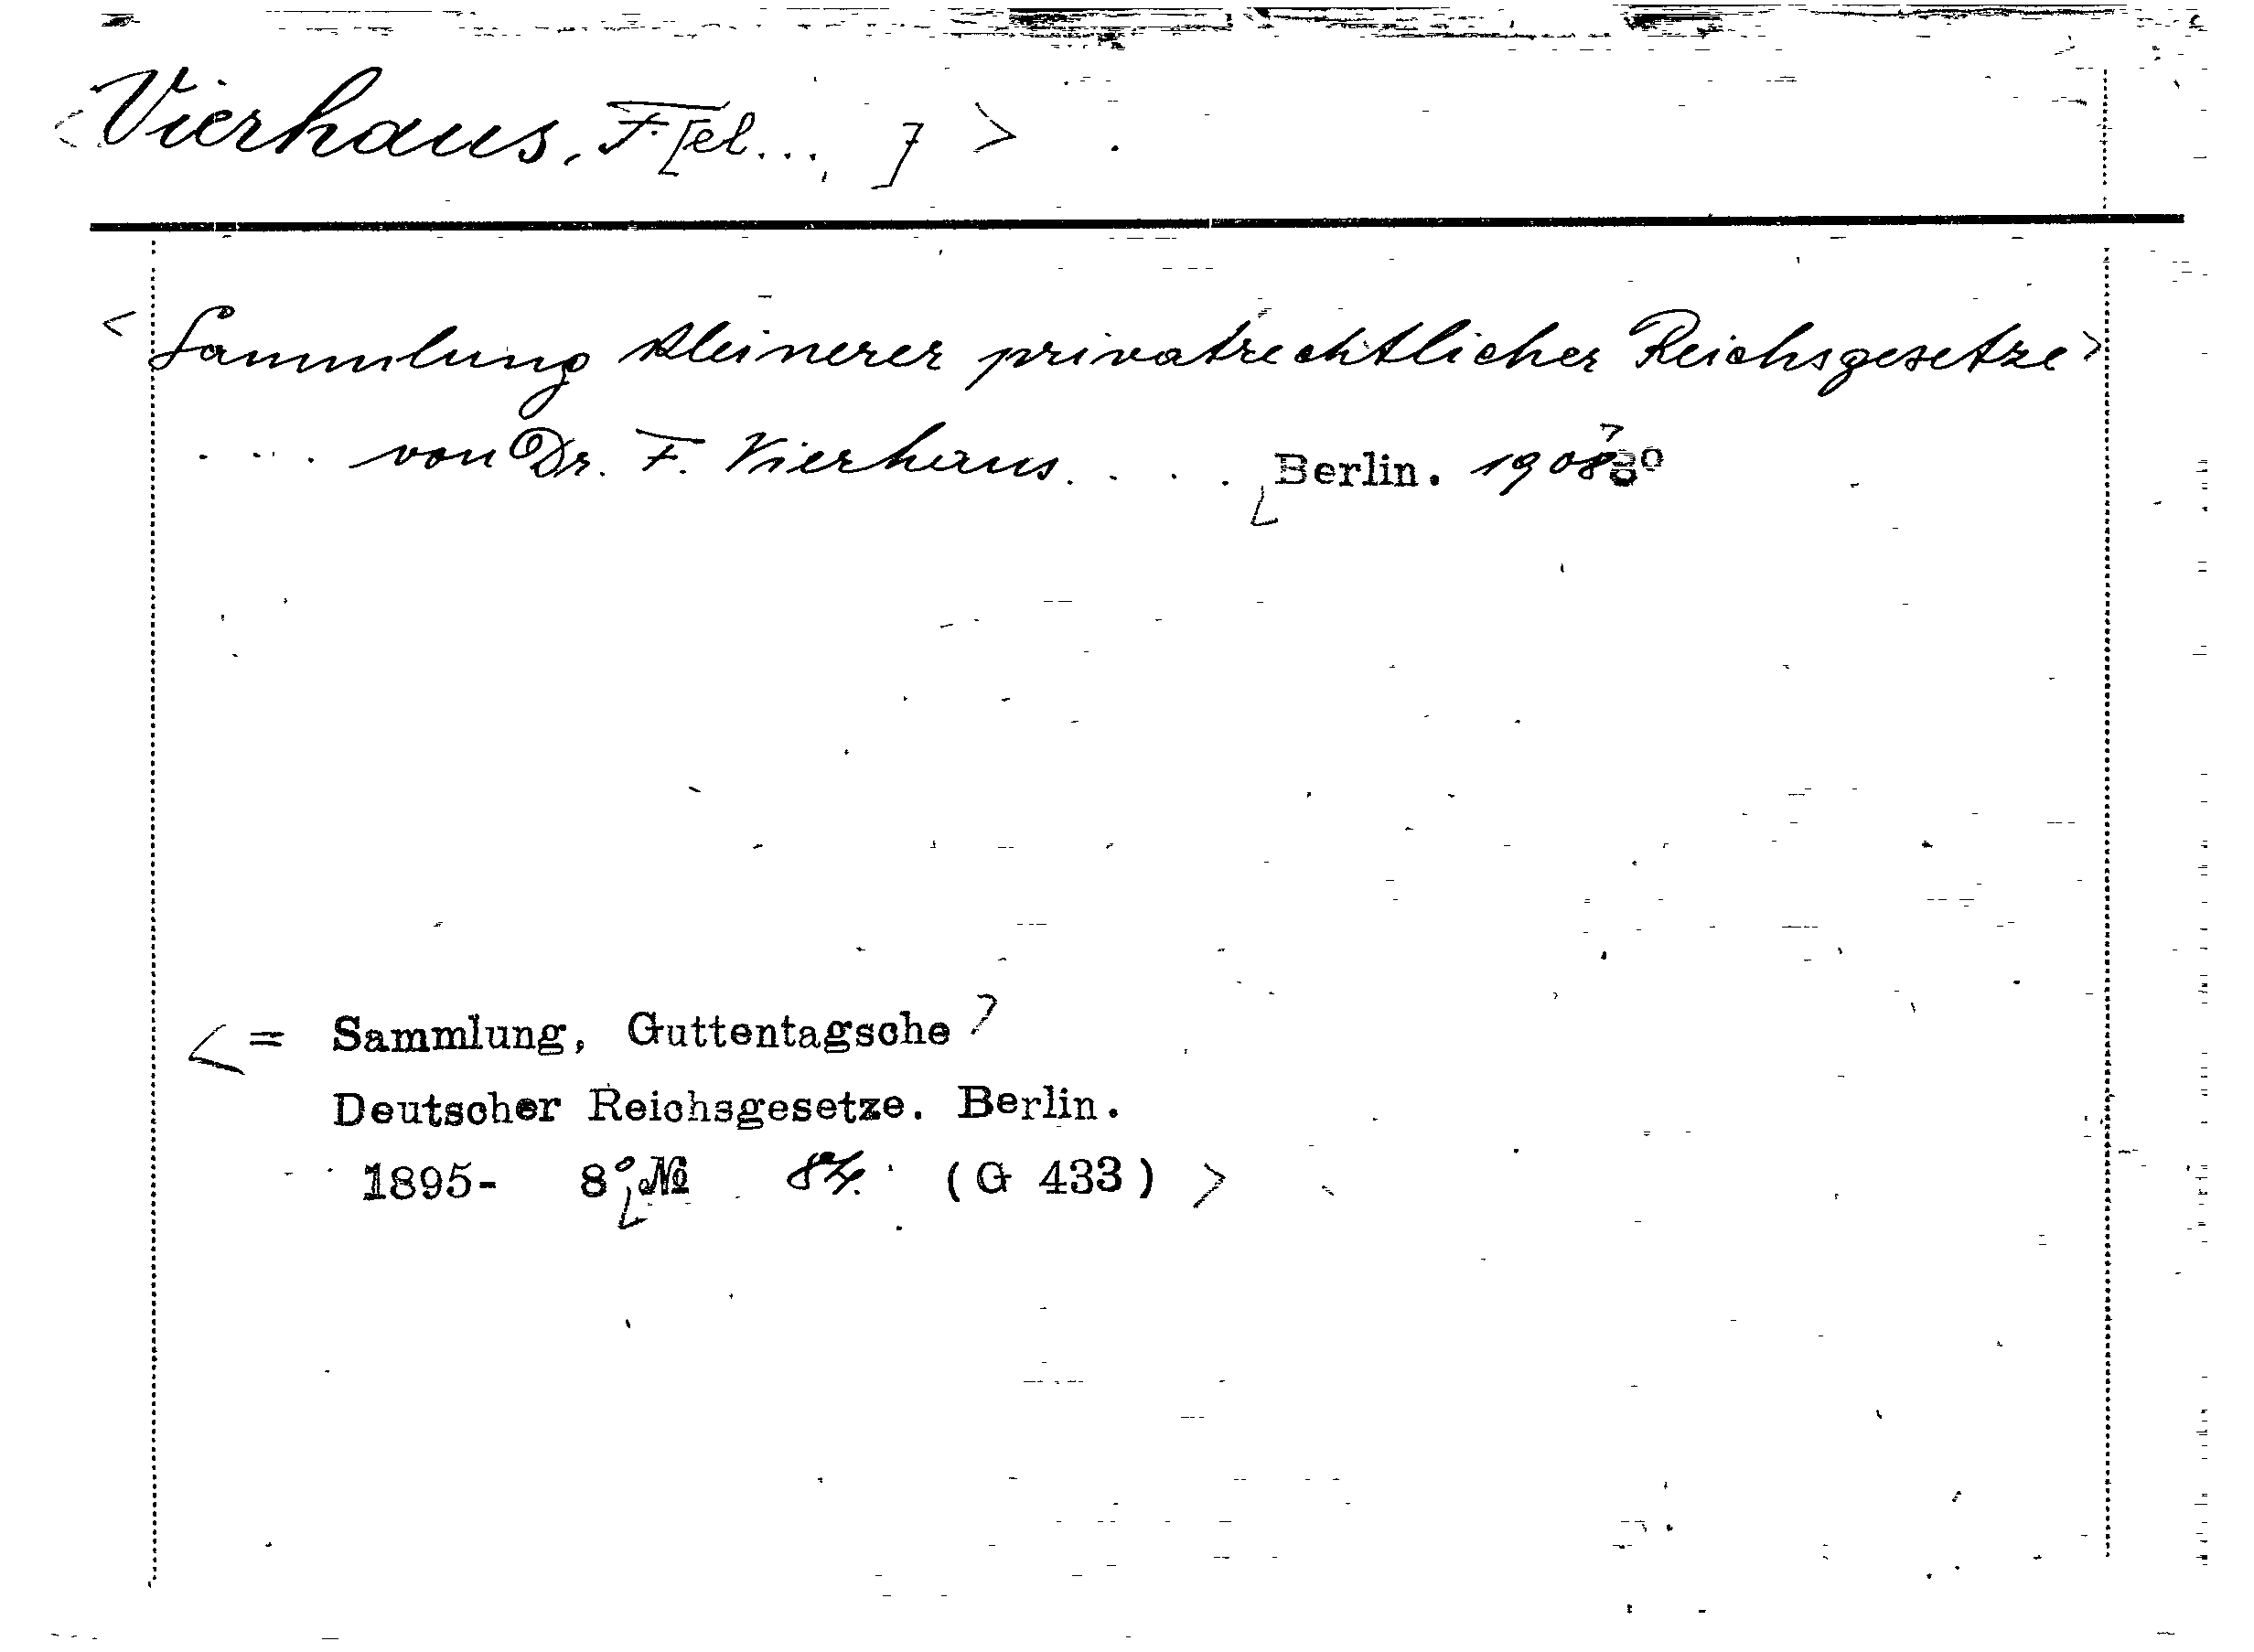 <Vierhaus, F.[el..., ]>
<Sammlung kleinerer privatrechtlicher Reichsgesetze>
.... von Dr. F. Vierhaus.... Berlin. 1908 8°
<= Sammlung, Guttentagsche>
Deutscher Reichsgesetze. Berlin.
1895- 8° № (G 433) >